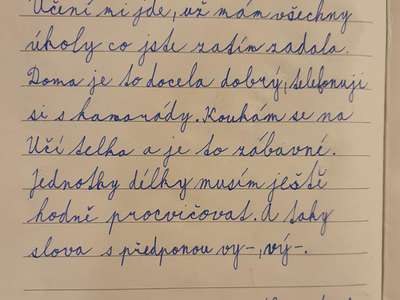 Učení mi jde, už mám všechny
úkoly co jste zatím zadala.
Doma je to docela dobrý, telefonuji
si s kamarády. Koukám se na
Učí telka a je to zábavné.
Jednotky délky musím ještě
hodně procvičovat. A taky
slova s předponou vy-, vý-.